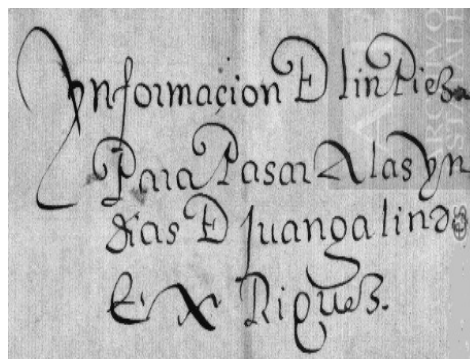 Ynformaçion D linPieza
Para Pasar A las Yn
dias D Juan galindo
Riquez.